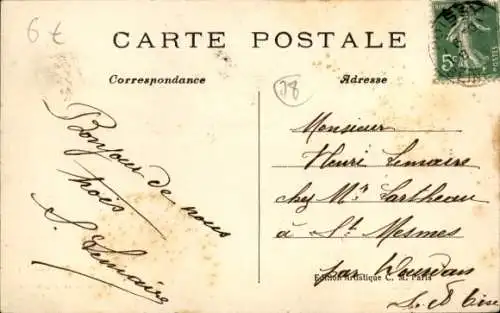 6 €
CARTE POSTALE
Correspondance
Adresse
78
5c
Bonjour de nous
trois
S. Lemaire
Monsieur
Henri Lemaire
chez Mr Lartheau
à St Mesmes
par Dourdan
S. et Oise
Edition Artistique C. M. Paris